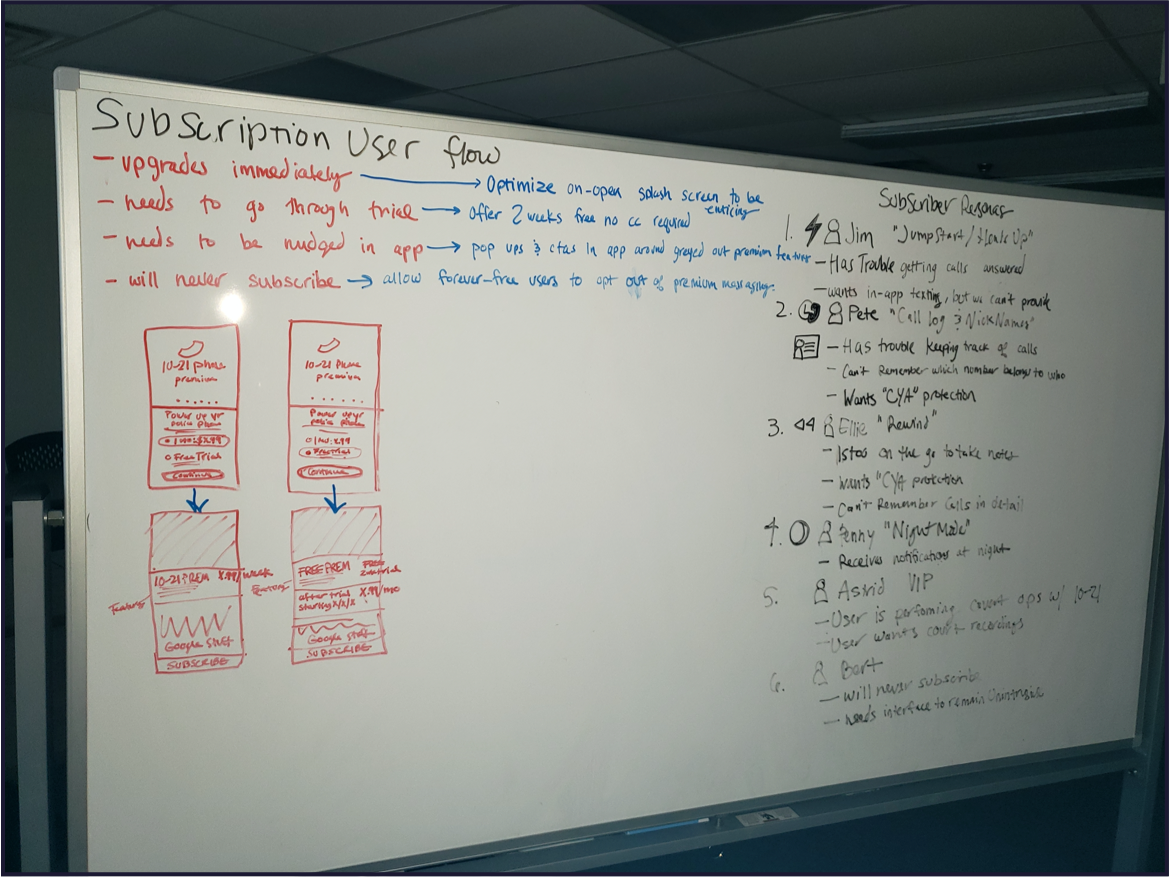 Subscription User flow
- upgrades immediately → Optimize on-open splash screen to be enticing
- needs to go through trial → offer 2 weeks free no cc required
- needs to be nudged in app → pop ups & ctas in app around greyed out premium features
- will never subscribe → allow forever-free users to opt out of premium messaging.
10-21 phone
premium
......
Power up yr
police phone
1 mo: $X.99
Free Trial
Continue
10-21 PREM X.99/week
Features
Google stuff
SUBSCRIBE
10-21 Phone
premium
......
Power up yr
police phone
1 mo: X.99
Free Trial
Continue
FREE PREM FREE
Features
after trial X.99/mo
starting X/X/X
Google stuff
SUBSCRIBE
Subscriber Personas
1. Jim "Jumpstart/ Up"
- Has Trouble getting calls answered
- wants in-app texting, but we can't provide
2. Pete "Call log & NickNames"
- Has trouble keeping track of calls
- Can't Remember which number belongs to who
- Wants "CYA" protection
3. Ellie "Rewind"
- on the go to take notes
- wants "CYA protection
- Can't Remember Calls in detail
4. "Night Mode"
- Receives notifications at night
5. Astrid VIP
- User is performing covert ops w/ 10-21
- User wants court recordings
6. Bart
- will never subscribe
- needs interface to remain